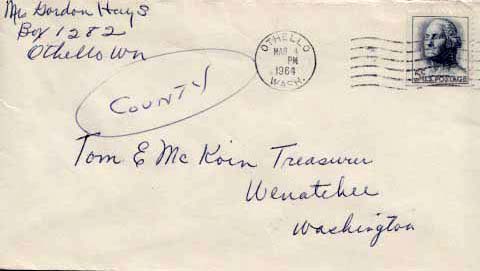 Mrs Gordon Hays
Box 1282
Othello Wn
OTHELLO
MAR 4
PM
1964
WASH.
U.S. POSTAGE
COUNTY
Tom E McKoin Treasurer
Wenatchee
Washington